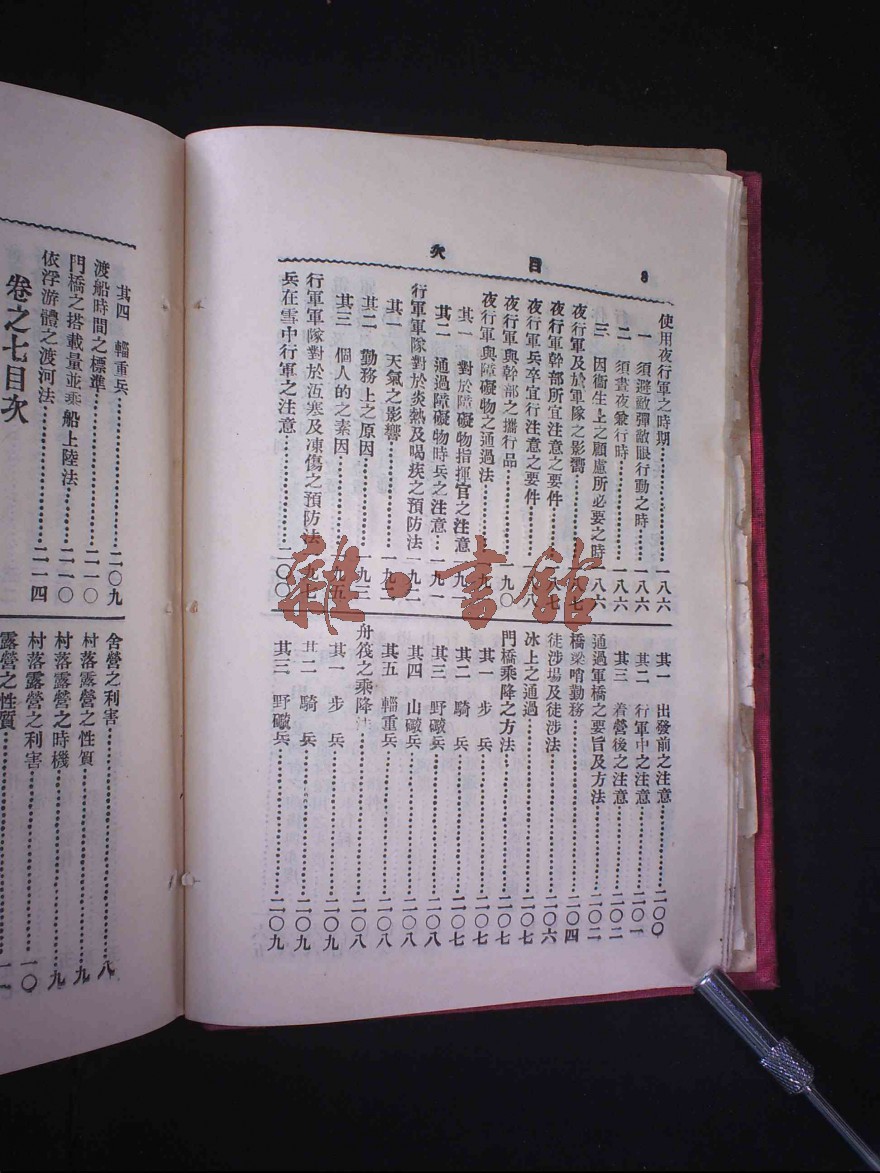 目次
8
使用夜行軍之時期…………一八六
一 須避敵彈敵眼行動之時…………一八六
二 須晝夜兼行時…………一八六
三 因衞生上之顧慮所必要之時…………一八六
夜行軍及於軍隊之影響…………一八七
夜行軍幹部所宜注意之要件…………一八七
夜行軍兵卒宜行注意之要件…………一八八
夜行軍與幹部之攜行品…………一九〇
夜行軍與障礙物之通過法…………一九一
其一 對於障礙物指揮官之注意…………一九一
其二 通過障礙物時兵之注意…………一九一
行軍軍隊對於炎熱及喝疾之預防法…………一九二
其一 天氣之影響…………一九二
其二 勤務上之原因…………一九三
其三 個人的之素因…………一九五
行軍軍隊對於沍寒及凍傷之預防法…………一九七
兵在雪中行軍之注意…………二〇〇
其一 出發前之注意…………二〇〇
其二 行軍中之注意…………二〇一
其三 着營後之注意…………二〇二
通過軍橋之要旨及方法…………二〇二
橋梁哨勤務…………二〇四
徒涉場及徒涉法…………二〇六
冰上之通過…………二〇七
門橋乘降之方法…………二〇七
其一 步兵…………二〇七
其二 騎兵…………二〇七
其三 野礮兵…………二〇八
其四 山礮兵…………二〇八
其五 輜重兵…………二〇八
舟筏之乘降法…………二〇八
其一 步兵…………二〇九
其二 騎兵…………二〇九
其三 野礮兵…………二〇九
其四 輜重兵…………二〇九
渡船時間之標準…………二一〇
門橋之搭載量並乘船上陸法…………二一〇
依浮游體之渡河法…………二一四
卷之七目次
舍營之利害…………八
村落露營之性質…………九
村落露營之時機…………九
村落露營之利害…………一〇
露營之性質…………一一
雜·書館